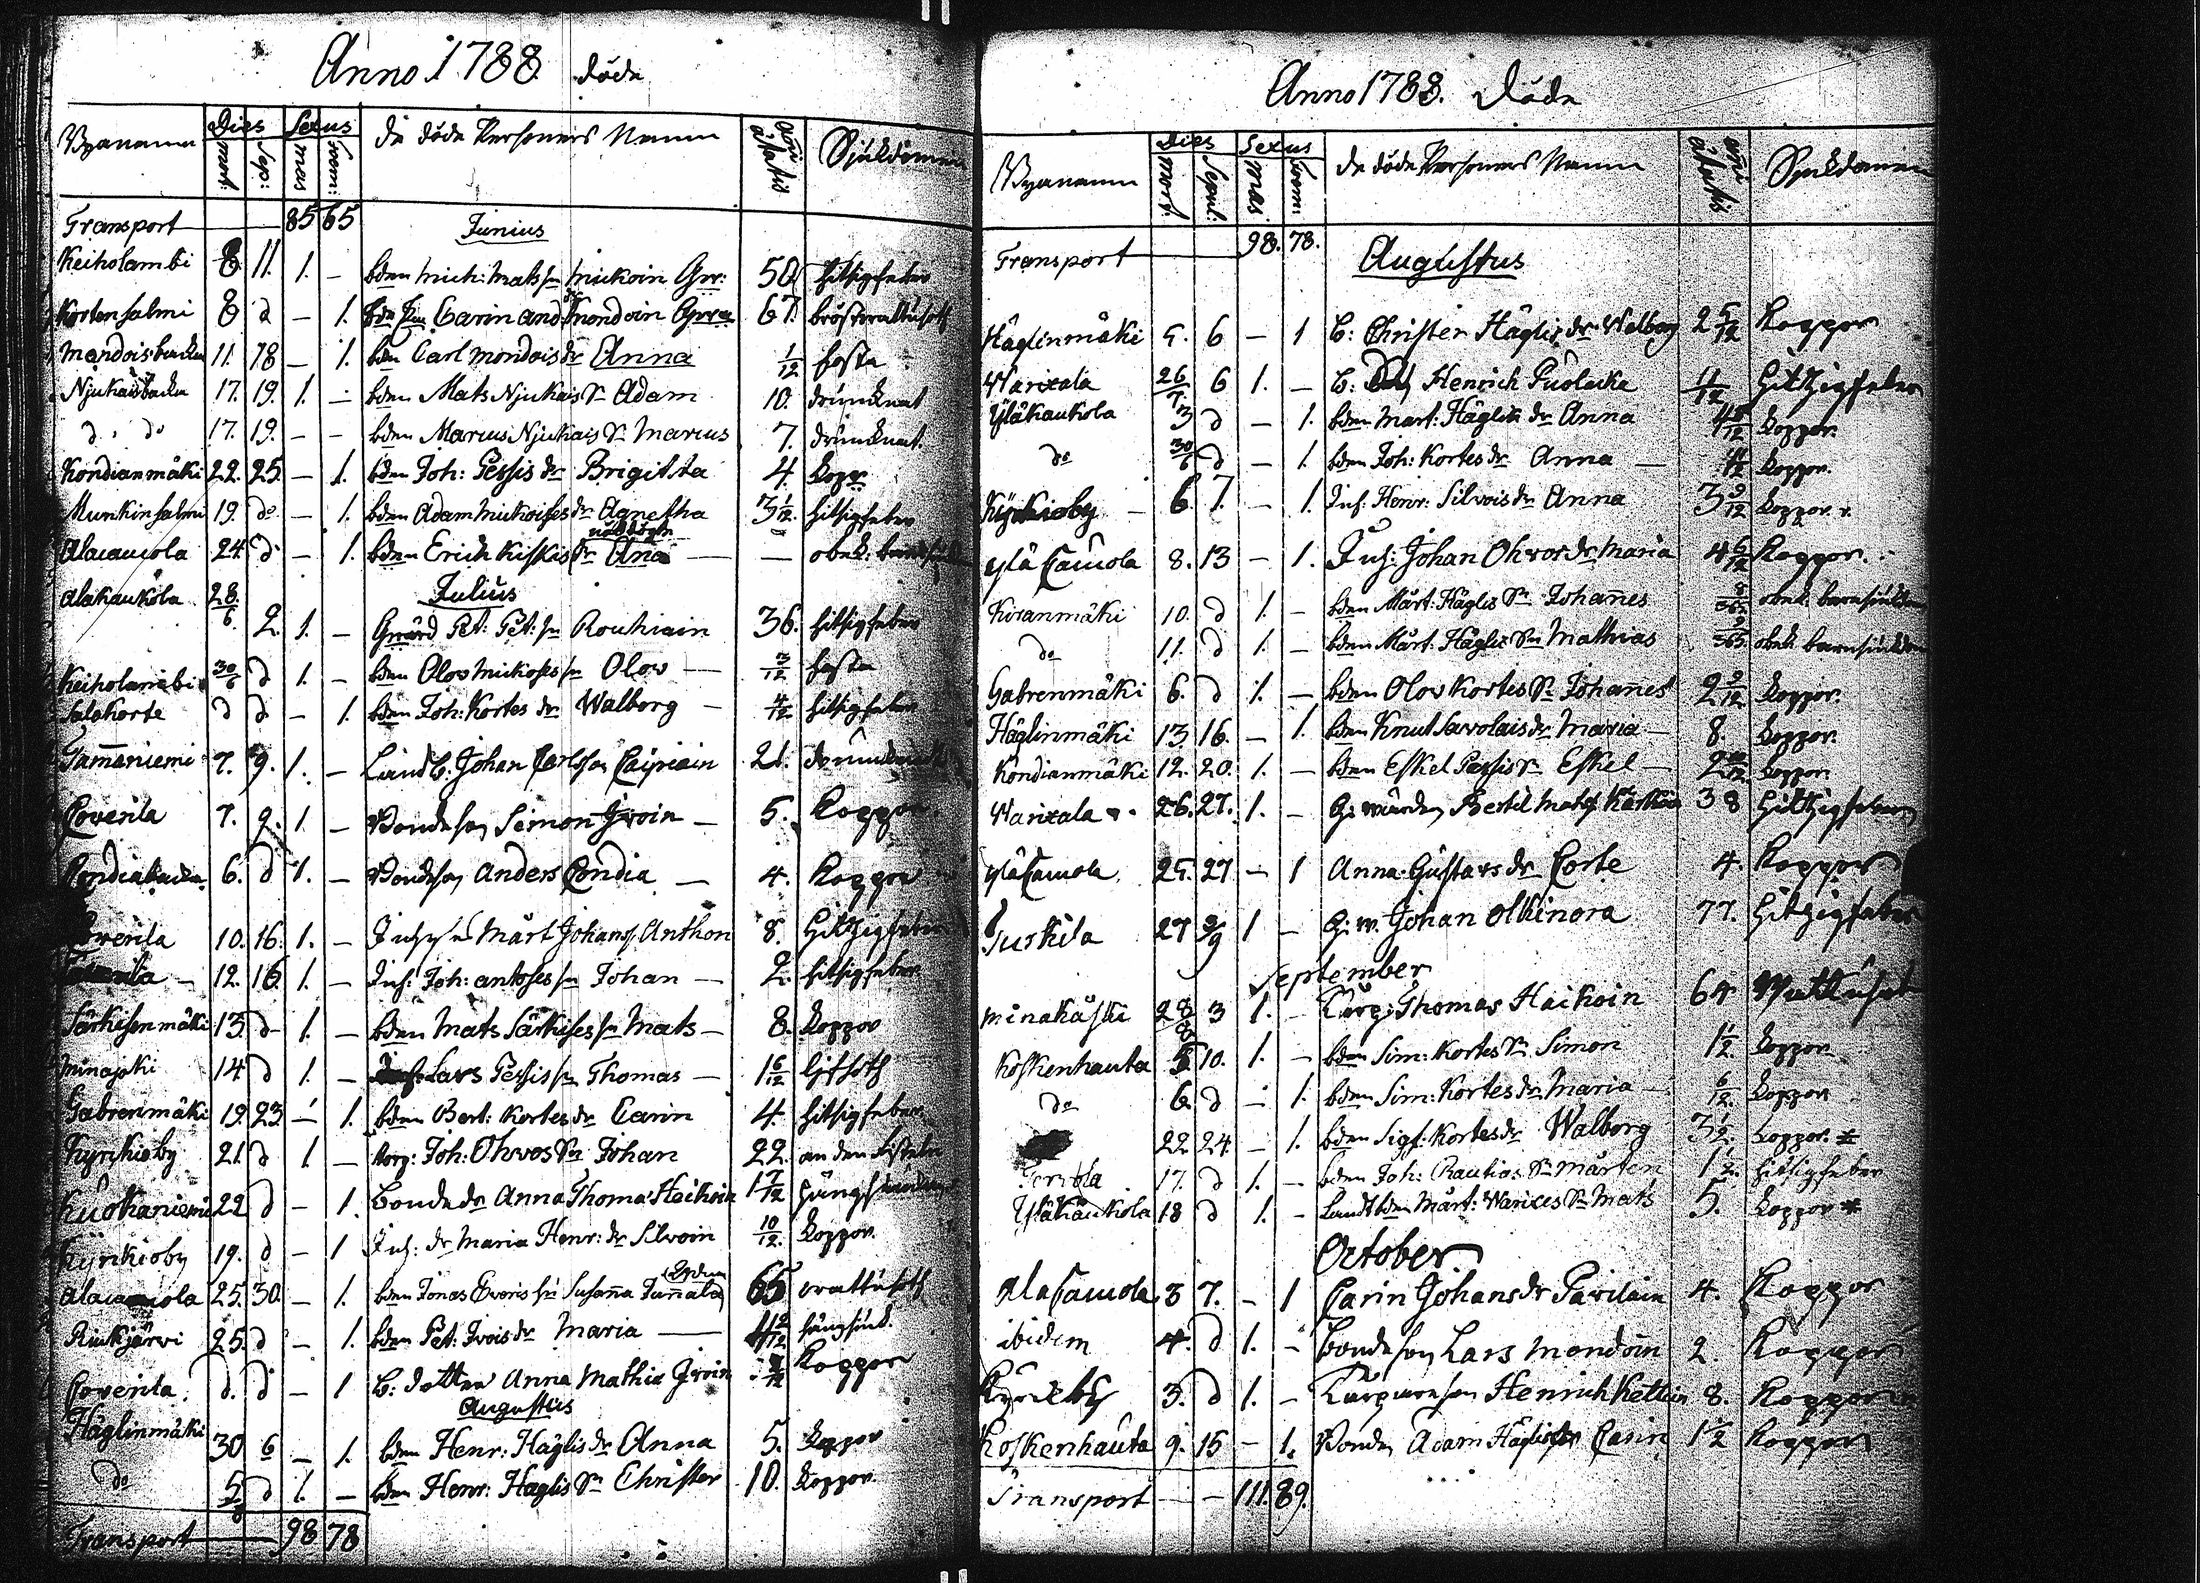 Anno 1788. döde
Bÿanamn Dies Sexus de döde Personers Namn Anni ætatis Sjukdomen
mort: Sep: mas foem:
Transport — — 85 65 Junius
Keiholambi 8. 11. 1. – bden Mich: Mats sn Mickoin Gvr: 50 hitsigfeber
Kortensalmi 8 d – 1. Carin And: Mondoin 67.
Mondoisbacka 11. 18 – 1. bden Carl Mondois dr Anna 1/12 hosta
Njukaisbacka 17. 19. 1 – bden Mats Njukais Sn Adam 10. drunknat
do do 17. 19. – – bden Marcus Njukais Sn Marcus 7. drunknat.
Kondianmäki 22. 25. – 1. bden Joh: Pessis dr Brigitta 4. kopor
Munkinsalmi 19. do – 1. bden Adam Mickoises dr Agnetha 3 1/12. hitsigfeber
Alacauvola 24. d – 1. bden Erich Kiskis dr Ana nöddöpt — — obek. barnsjukd
Julius
Alakaukola 28/6 2. 1. – Gvärd Pet: Pet: sn Rouhiain 36. hitsigfeber
Keiholambi 30/6 d 1. – bden Olov Mickoses sn Olov — 3/12 hosta
Salakorte d d – 1. bden Joh: Kortes dr Walborg – 4/12 hitsigfeber
Tam̄aniemi 7. 9. 1. – Landb: Johan Carlsson Caipiain 21. drunknat
Coverila 7. 9. 1 – Bondeson Simon Iivoin – 5. Koppor.
Condiabacka. 6. d 1. – Bondeson Anders Condia – 4. Koppor
Coverila 10. 16. 1. – Märt Johans. Anthon 8. Hitzigfeber
12. 16. 1. – Inh: Joh: Antoses sn Johan — 2. hitsigfeber
Särkisenmäki 13. d. 1. – bden Mats Särkises sn Mats – 8. koppor
Minajoki 14 d 1. – Lars Pessis sn Thomas – 1 6/12 ljfsoth
Gabrenmäki 19. 23. – 1. bden Bert: Kortes dr Carin 4. hitsigfeber
Kyrckioby 21. d 1 – torp: Joh: Ohvos Sn Johan 22. an den fisteln
Kuokaniemi 22 d – 1. bonde dr Anna Thoma Heikoin 1 7/12
Kÿrkioby 19. d – 1 Inh: dr Maria Henr: dr Silvoin 10/12. koppor.
Alacauvola 25. 30. – 1. bden Jonas Everis Susan̄a Jun̄ala 65 vattusoth
Ruckjärvi 25. d – 1. bden Pet: Ivois dr Maria —
Coverila. d. d – 1 B: dotter Anna Mathia Iivoin Koppor
Augustus
Häglinmäki 30 6 – 1. bden Henr: Häglis dr Anna 5. koppor
do 5/8 d 1. – bden Henr: Häglis Sn Christer 10. koppor.
Transport — 98 78
Anno 1788. Döde
Bÿanamn Dies Sexus de döde Personers Namn anni ætatis Sjukdomen
mort. Sepul: mas foem:
Transport — 98. 78. Augustus
Häglinmäki 5. 6 – 1 B: Christer Häglis dr Walborg 2 5/12 Koppor
Warixala 26/7. 6 1. – B: Henrich Puolacka 11/12 Hitzigfeber
Yläkaukola 3 d – 1. bden Mart: Häglis dr Anna koppor.
do 30/6 d – 1. bden Joh: Kortes dr Anna — koppor.
Kÿrkioby – 6. 7. – 1. Inh: Henr: Silvois dr Anna 3 9/12 koppor.
Ylä Camola 8. 13 – 1. Inh: Johan Ohvos dr Maria 4 6/12 Koppor.
Kiranmäki 10. d 1. – bden Märt: Häglis Sn Johan̄es 8/365 obek. barnsjukdom
do 11. d 1 – bden Märt: Häglis Sn Mathias 9/365. obek. barnsjukdom
Gabrenmäki 6. d 1. – bden Olov Kortes Sn Johan̄es 2 9/12 koppor.
Häglinmäki 13. 16. – 1. bden Knut Savolais dr Maria – 8. koppor.
Kondianmäki 12. 20. 1. – bden Eskel Pessis Sn Eskel – koppor.
Warixala 26. 27. 1. – G: wärden Bertil Mats 38 Hitzigfeber
Ylä Camola. 25. 27 – 1 Anna Gustavs dr Corte 4. Koppor
27 3/9 1 – G: w. Johan Olkinora 77. Hitzigfeber
September
Minakäski 28/8 3 1. – Torp: Thomas Haikoin 64 Wattusot
Koskenhauta 5 10. 1. – bden Sim: Kortes Sn Simon 1 1/2 koppor.
do 6. d – 1. bden Sim: Kortes dr Maria – 6/12. koppor.
22. 24. – 1. bden Sigf: Kortes dr Walborg 3 1/2. koppor. *
17. d 1. – bden Joh: Rautios Sn Mårten 1 1/2. hitsigfeber
Yläkaukola 18 d 1. – Landtbden Märt: Warixes Sn Mats 5. koppor *
October
Ala Camola 3 7. – 1 Carin Johans dr Pavilain 4. Koppor
ibidem 4. d 1. – Bondeson Lars Mondoin 2. Koppor
Kyrckby 3. d 1. – Torpareson Henrich Kettuin 8. Koppor
Koskenhauta 9. 15 – 1. Bonden Adam Häglis dr Carin 1 1/2 Koppor
Transport — – 111. 89.